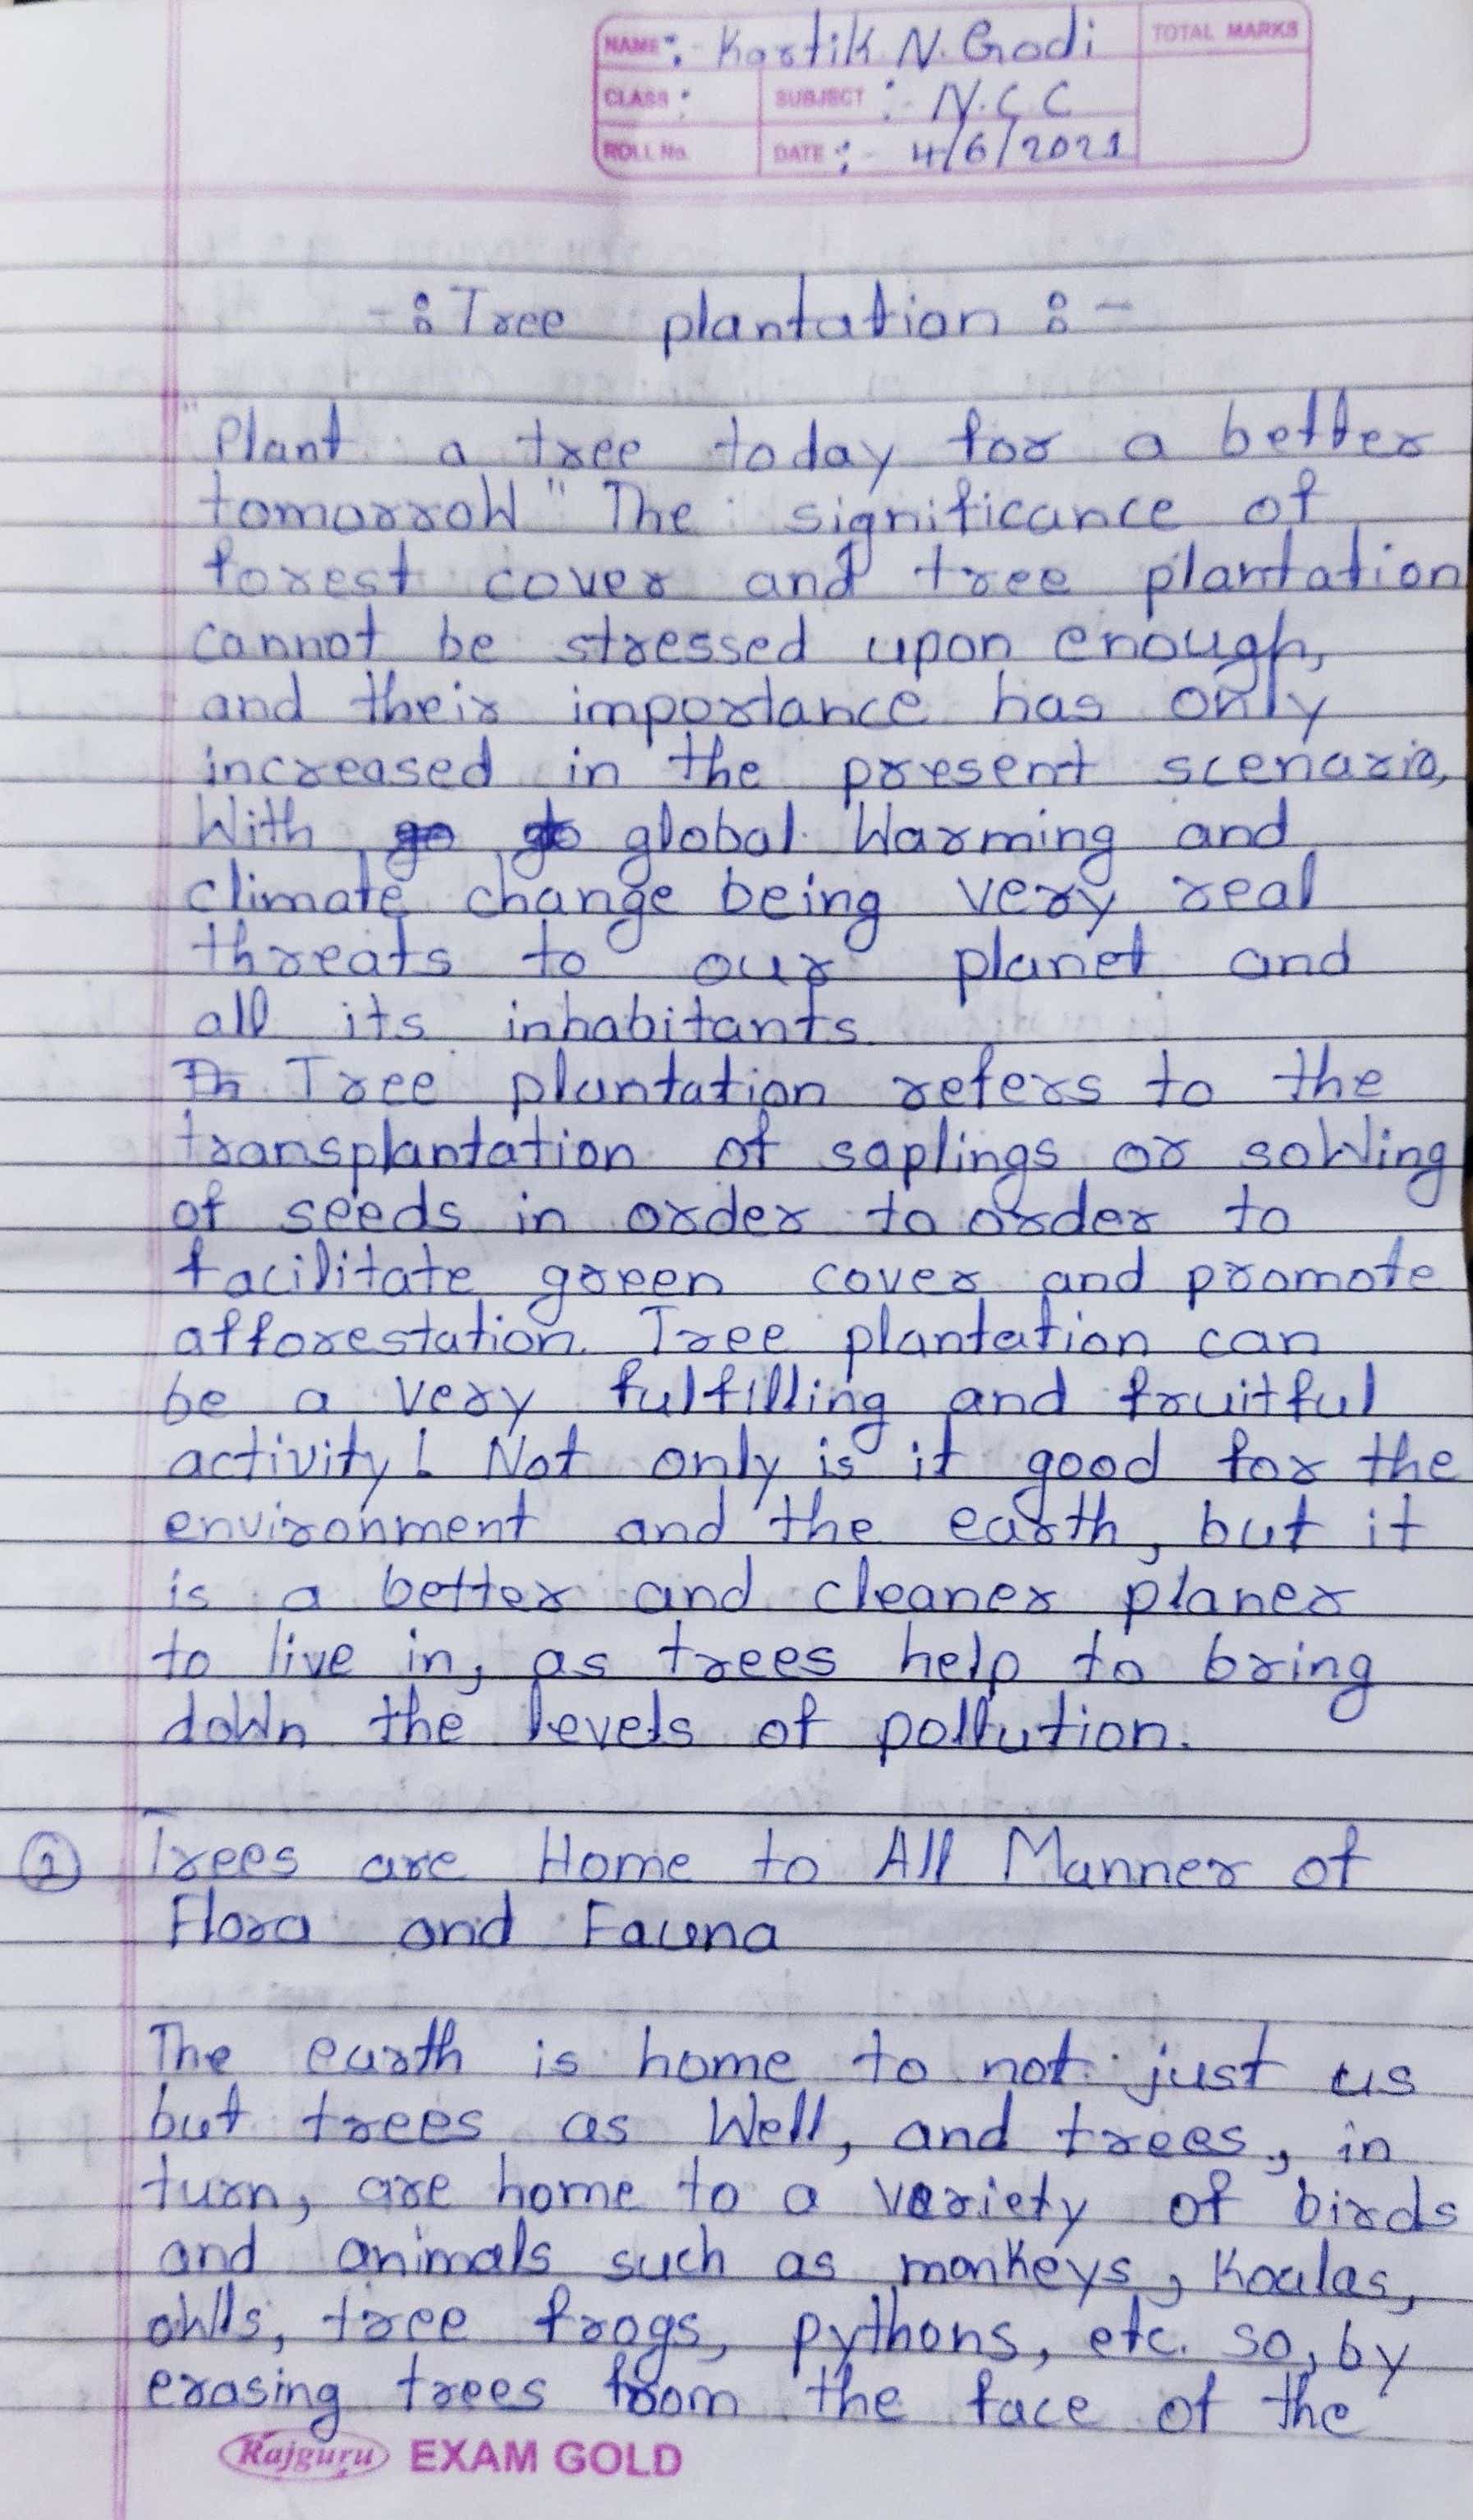 NAME :- Kartik N. Godi
TOTAL MARKS
CLASS :
SUBJECT :- N.C.C
ROLL No.
DATE :- 4/6/2021
-: Tree plantation :-
"Plant a tree today for a better
tomorrow" The significance of
forest cover and tree plantation
cannot be stressed upon enough,
and their importance has only
increased in the present scenario,
With global Warming and
climate change being very real
threats to our planet and
all its inhabitants.
Tree plantation refers to the
transplantation of saplings or sowing
of seeds in order to order to
facilitate green cover and promote
afforestation. Tree plantation can
be a very fulfilling and fruitful
activity! Not only is it good for the
environment and the earth, but it
is a better and cleaner planer
to live in, as trees help to bring
down the levels of pollution.
Trees are Home to All Manner of
Flora and Fauna
The earth is home to not just us
but trees as Well, and trees, in
turn, are home to a variety of birds
and animals such as monkeys, Koalas,
owls, tree frogs, pythons, etc. so, by
erasing trees from the face of the
Rajguru EXAM GOLD